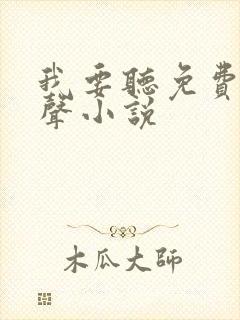 我要聽免費
聲小說
木瓜大師